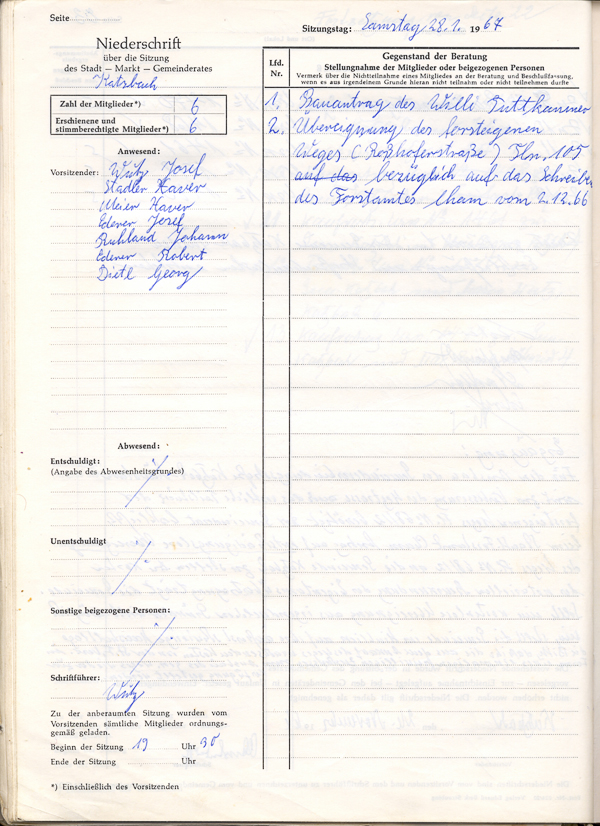 Seite
Sitzungstag: Samstag 28.1. 1967
Niederschrift
über die Sitzung
des Stadt – Markt – Gemeinderates
Katzbach
Zahl der Mitglieder*) 6
Erschienene und
stimmberechtigte Mitglieder*) 6
Anwesend:
Vorsitzender: Wutz Josef
Stadler Xaver
Meier Xaver
Ederer Josef
Ruhland Johann
Ederer Robert
Dietl Georg
Abwesend:
Entschuldigt:
(Angabe des Abwesenheitsgrundes)
Unentschuldigt
Sonstige beigezogene Personen:
Schriftführer:
Wutz
Zu der anberaumten Sitzung wurden vom
Vorsitzenden sämtliche Mitglieder ordnungs-
gemäß geladen.
Beginn der Sitzung 19 Uhr 30
Ende der Sitzung Uhr
*) Einschließlich des Vorsitzenden
Lfd.
Nr.
Gegenstand der Beratung
Stellungnahme der Mitglieder oder beigezogenen Personen
Vermerk über die Nichtteilnahme eines Mitgliedes an der Beratung und Beschlußfassung,
wenn es aus irgendeinem Grunde hieran nicht teilnahm oder nicht teilnehmen durfte
1. Bauantrag des Willi Puttkammer
2. Übereignung des forsteigenen
Weges (Roßhoferstraße) Fln. 105
auf das bezüglich auf das Schreiben
des Forstamtes Cham vom 2.12.66